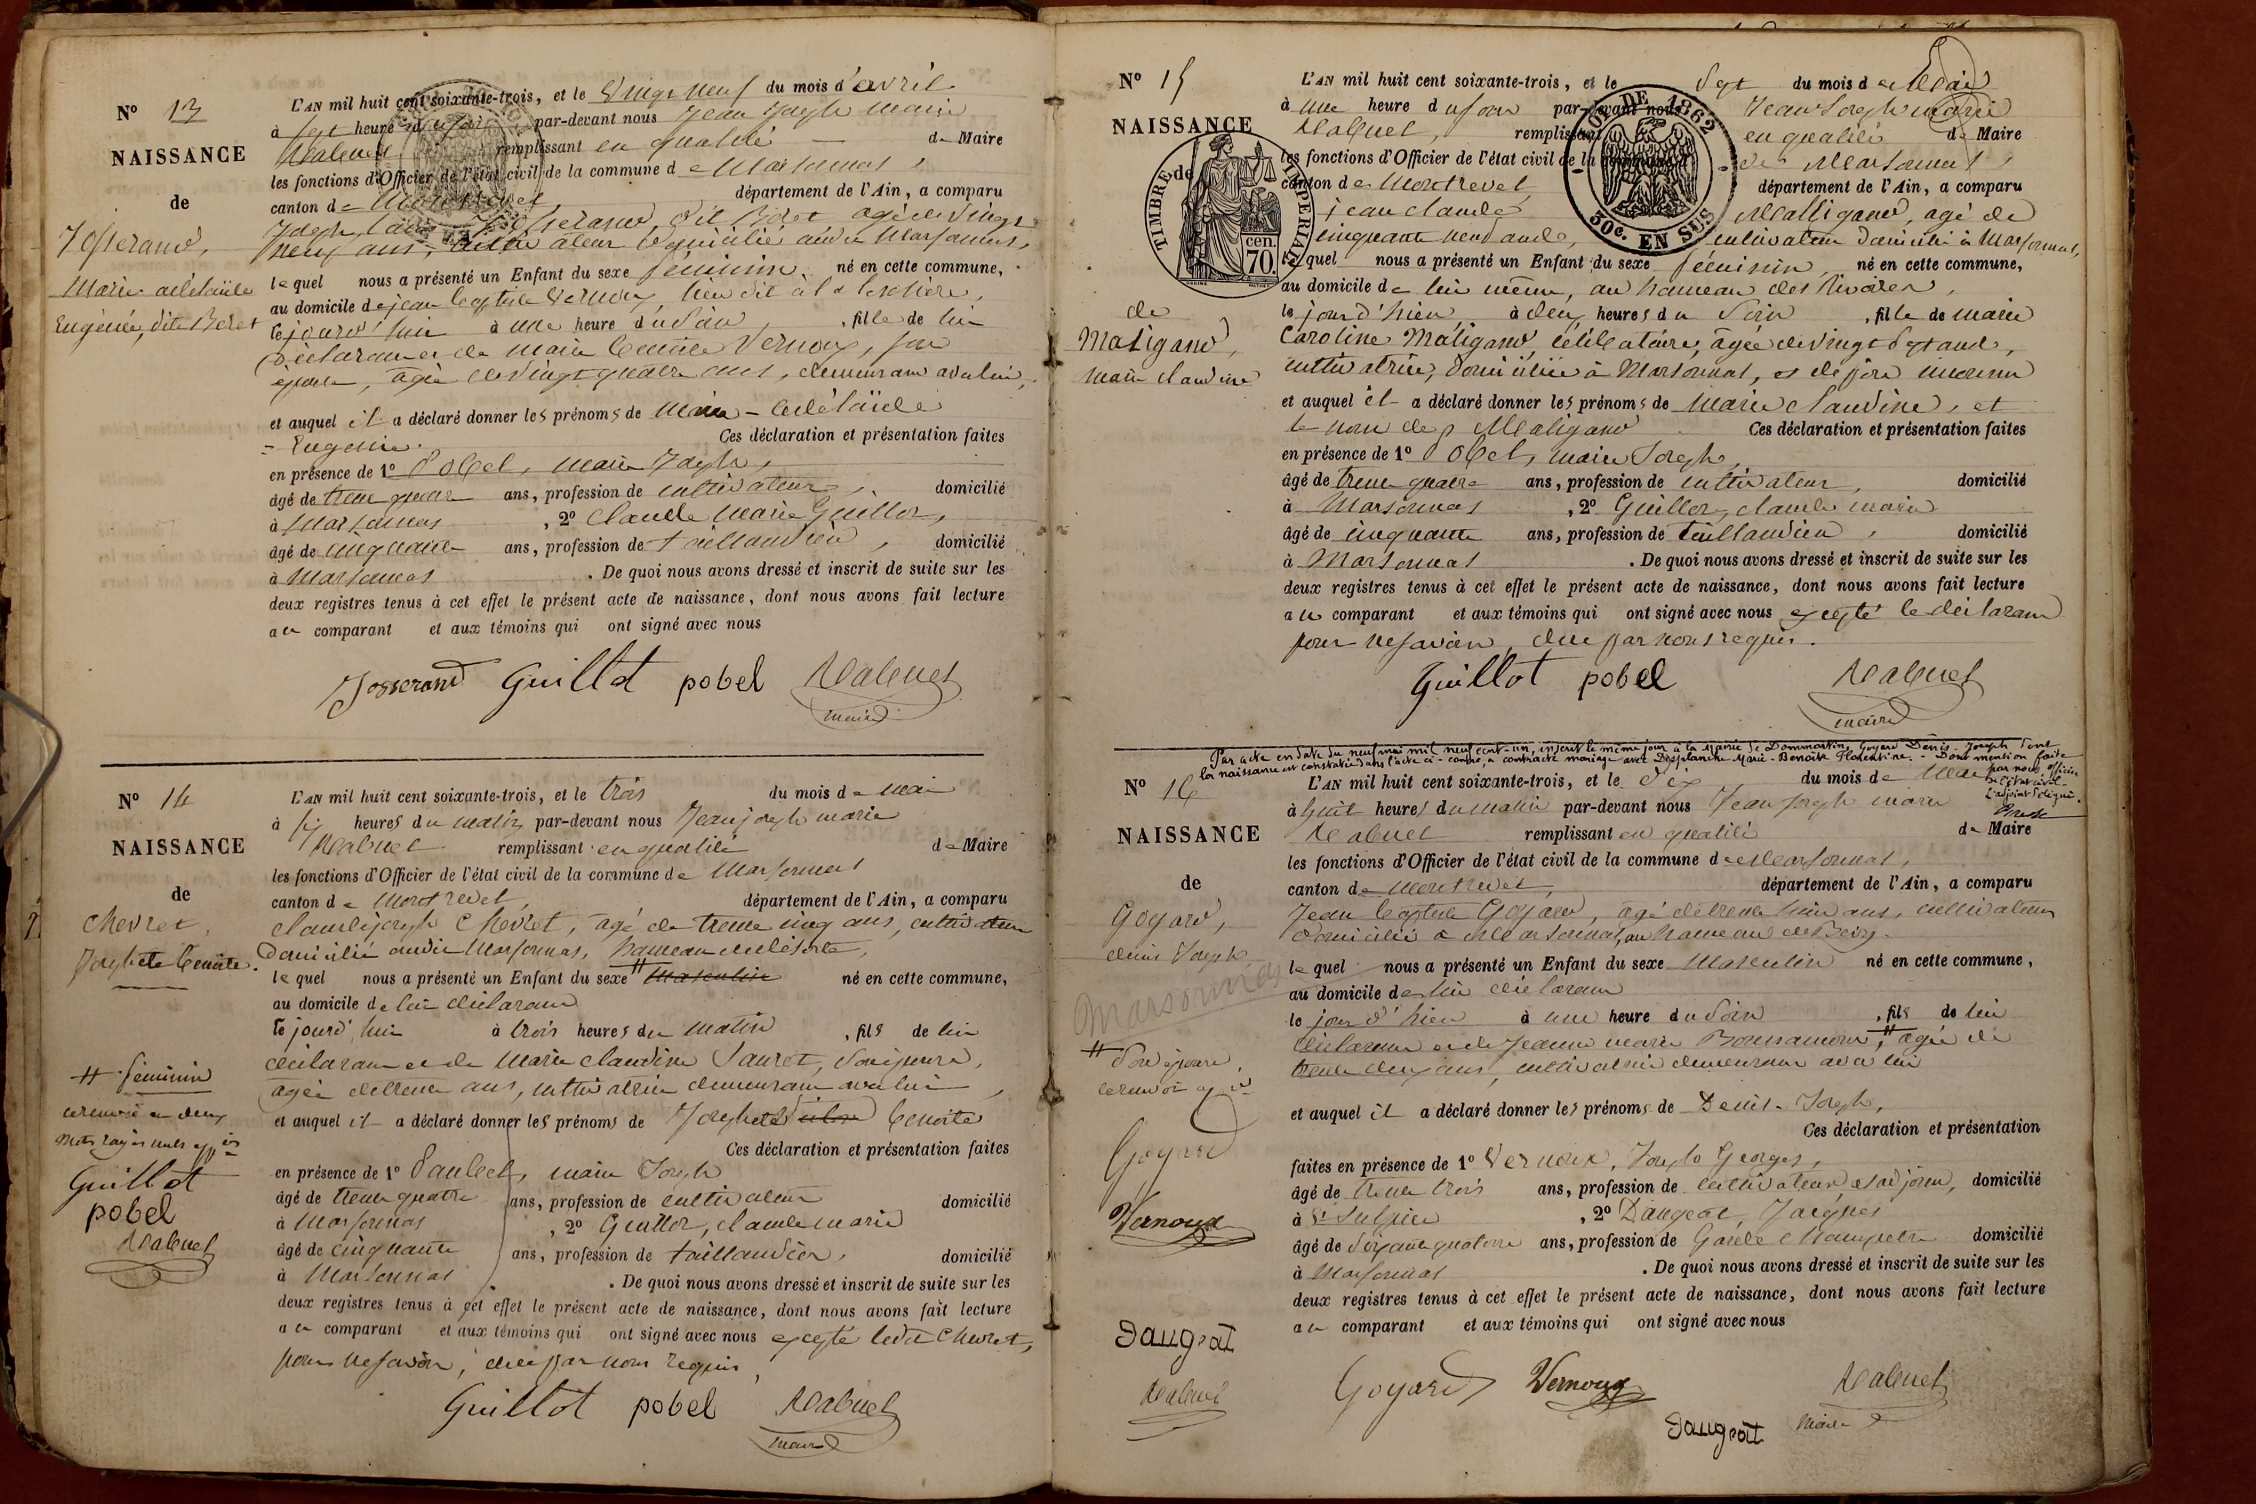 N° 13
NAISSANCE
de
Josserand,
Marie adélaïde
Eugénie, dite Beret
L'AN mil huit cent soixante-trois, et le Vingt neuf du mois d'avril
à sept heure du soir par-devant nous Jean Joseph Marie
Rabuel, remplissant en qualité de Maire
les fonctions d'Officier de l'état civil de la commune de Marsonnas,
canton de Montrevel, département de l'Ain, a comparu
Joseph Josserand, dit Beret agé de vingt
neuf ans, cultivateur domicilié audit Marsonnas,
lequel nous a présenté un Enfant du sexe féminin, né en cette commune,
au domicile de jean Baptiste Vernoux, lieu dit à la
le jourd'hui à une heure du soir, fille de lui
déclarant et de marie Benoite Vernoux, son
épouse, agée de vingt quatre ans, demeurant avec lui,
et auquel il a déclaré donner les prénoms de Marie - adélaïde
- Eugénie. Ces déclaration et présentation faites
en présence de 1° Pobel, marie Joseph,
âgé de trente quatre ans, profession de cultivateur, domicilié
à Marsonnas, 2° Claude Marie Guillot,
âgé de cinquante ans, profession de taillandier, domicilié
à Marsonnas. De quoi nous avons dressé et inscrit de suite sur les
deux registres tenus à cet effet le présent acte de naissance, dont nous avons fait lecture
au comparant et aux témoins qui ont signé avec nous
Josserand Guillot pobel Rabuel
maire
N° 14
NAISSANCE
de
Chevret,
Josephte Benoite.
# féminin
le renvoi et deux
mots rayés nuls app.és
Guillot
pobel
Rabuel
L'AN mil huit cent soixante-trois, et le trois du mois de mai
à six heures du matin par-devant nous Jean joseph marie
Rabuel remplissant en qualité de Maire
les fonctions d'Officier de l'état civil de la commune de Marsonnas
canton de Montrevel, département de l'Ain, a comparu
claude joseph Chevret, agé de trente cinq ans, cultivateur
domicilié audit Marsonnas, hameau
lequel nous a présenté un Enfant du sexe # masculin né en cette commune,
au domicile de lui déclarant
le jourd'hui à trois heures du matin, fils de lui
déclarant et de Marie claudine Sauret, son épouse,
agée de trente ans, cultivatrice demeurant avec lui,
et auquel il a déclaré donner les prénoms de Josephte Benoite
Ces déclaration et présentation faites
en présence de 1° Paubel, marie Joseph
âgé de trente quatre ans, profession de cultivateur domicilié
à Marsonnas, 2° Guillot, claude marie
âgé de cinquante ans, profession de taillandier, domicilié
à Marsonnas. De quoi nous avons dressé et inscrit de suite sur les
deux registres tenus à cet effet le présent acte de naissance, dont nous avons fait lecture
au comparant et aux témoins qui ont signé avec nous excepté ledit Chevret,
pour ne savoir, de ce par nous requis,
Guillot pobel Rabuel
maire
N° 15
NAISSANCE
de
TIMBRE IMPERIAL
70 cen.
LOI DE 1862
50c. EN SUS
de
Maligand,
Marie claudine
L'AN mil huit cent soixante-trois, et le Sept du mois de Mai
à une heure du soir par-devant nous Jean Joseph marie
Rabuel, remplissant en qualité de Maire
les fonctions d'Officier de l'état civil de la commune de Marsonnas,
canton de Montrevel département de l'Ain, a comparu
jean claude Malligand, agé de
cinquante neuf ans, cultivateur domicilié à Marsonnas,
lequel nous a présenté un Enfant du sexe féminin, né en cette commune,
au domicile de lui même, au hameau des Rivoires,
le jour d'hier, à deux heures du Soir, fille de marie
Caroline Maligand, célibataire, agée de vingt sept ans,
cultivatrice, domiciliée à Marsonnas, et de père inconnu
et auquel il a déclaré donner les prénoms de Marie claudine, et
le nom de Maligand Ces déclaration et présentation faites
en présence de 1° Pobel, marie Joseph,
âgé de trente quatre ans, profession de cultivateur, domicilié
à Marsonnas, 2° Guillot, claude marie
âgé de cinquante ans, profession de taillandier, domicilié
à Marsonnas. De quoi nous avons dressé et inscrit de suite sur les
deux registres tenus à cet effet le présent acte de naissance, dont nous avons fait lecture
au comparant et aux témoins qui ont signé avec nous excepté le déclarant
pour ne savoir, de ce par nous requis.
Guillot pobel Rabuel
maire
Par acte en date du neuf mai mil neuf cent-un, inscrit le même jour à la Mairie de Dommartin, Goyard Denis-Joseph dont
la naissance est constatée dans l'acte ci-contre, a contracté mariage avec Desplanche Marie-Benoite Florentine. - Dont mention faite
par nous officier
de l'état civil
L'adjoint délégué.
N° 16
NAISSANCE
de
Goyard,
denis Joseph
Marsonnas
# Son épouse,
le renvoi app.é
Goyard
Vernoux
Daugeat
Rabuel
L'AN mil huit cent soixante-trois, et le dix du mois de Mai
à huit heures du matin par-devant nous Jean Joseph marie
Rabuel remplissant en qualité de Maire
les fonctions d'Officier de l'état civil de la commune de Marsonnas,
canton de Montrevel, département de l'Ain, a comparu
Jean Baptiste Goyard, agé de trente huit ans, cultivateur
domicilié à Marsonnas, au hameau
lequel nous a présenté un Enfant du sexe Masculin né en cette commune,
au domicile de lui déclarant
le jour d'hier à une heure du Soir, fils de lui
déclarant et de Jeanne marie #, agée de
trente deux ans, cultivatrice demeurant avec lui
et auquel il a déclaré donner les prénoms de Denis-Joseph,
Ces déclaration et présentation
faites en présence de 1° Vernoux, Joseph Georges,
âgé de trente trois ans, profession de cultivateur et adjoint, domicilié
à St Sulpice, 2° Daugeat, Jacques
âgé de soixante quatorze ans, profession de Garde Champetre domicilié
à Marsonnas. De quoi nous avons dressé et inscrit de suite sur les
deux registres tenus à cet effet le présent acte de naissance, dont nous avons fait lecture
au comparant et aux témoins qui ont signé avec nous
Goyard Vernoux Rabuel
Daugeat maire